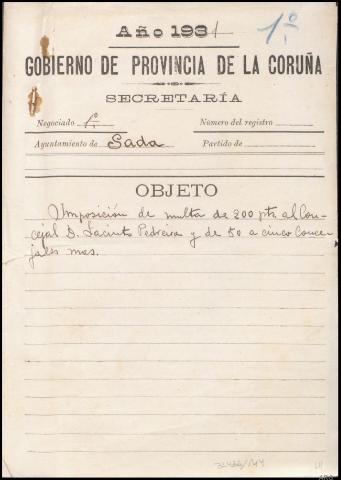 Año 1931
1º
GOBIERNO DE PROVINCIA DE LA CORUÑA
SECRETARÍA
Negociado 1º Número del registro
Ayuntamiento de Sada Partido de
OBJETO
Imposición de multa de 200 pts al Con-
cejal D. Jacinto Pedreira y de 50 a cinco Conce-
jales mas.